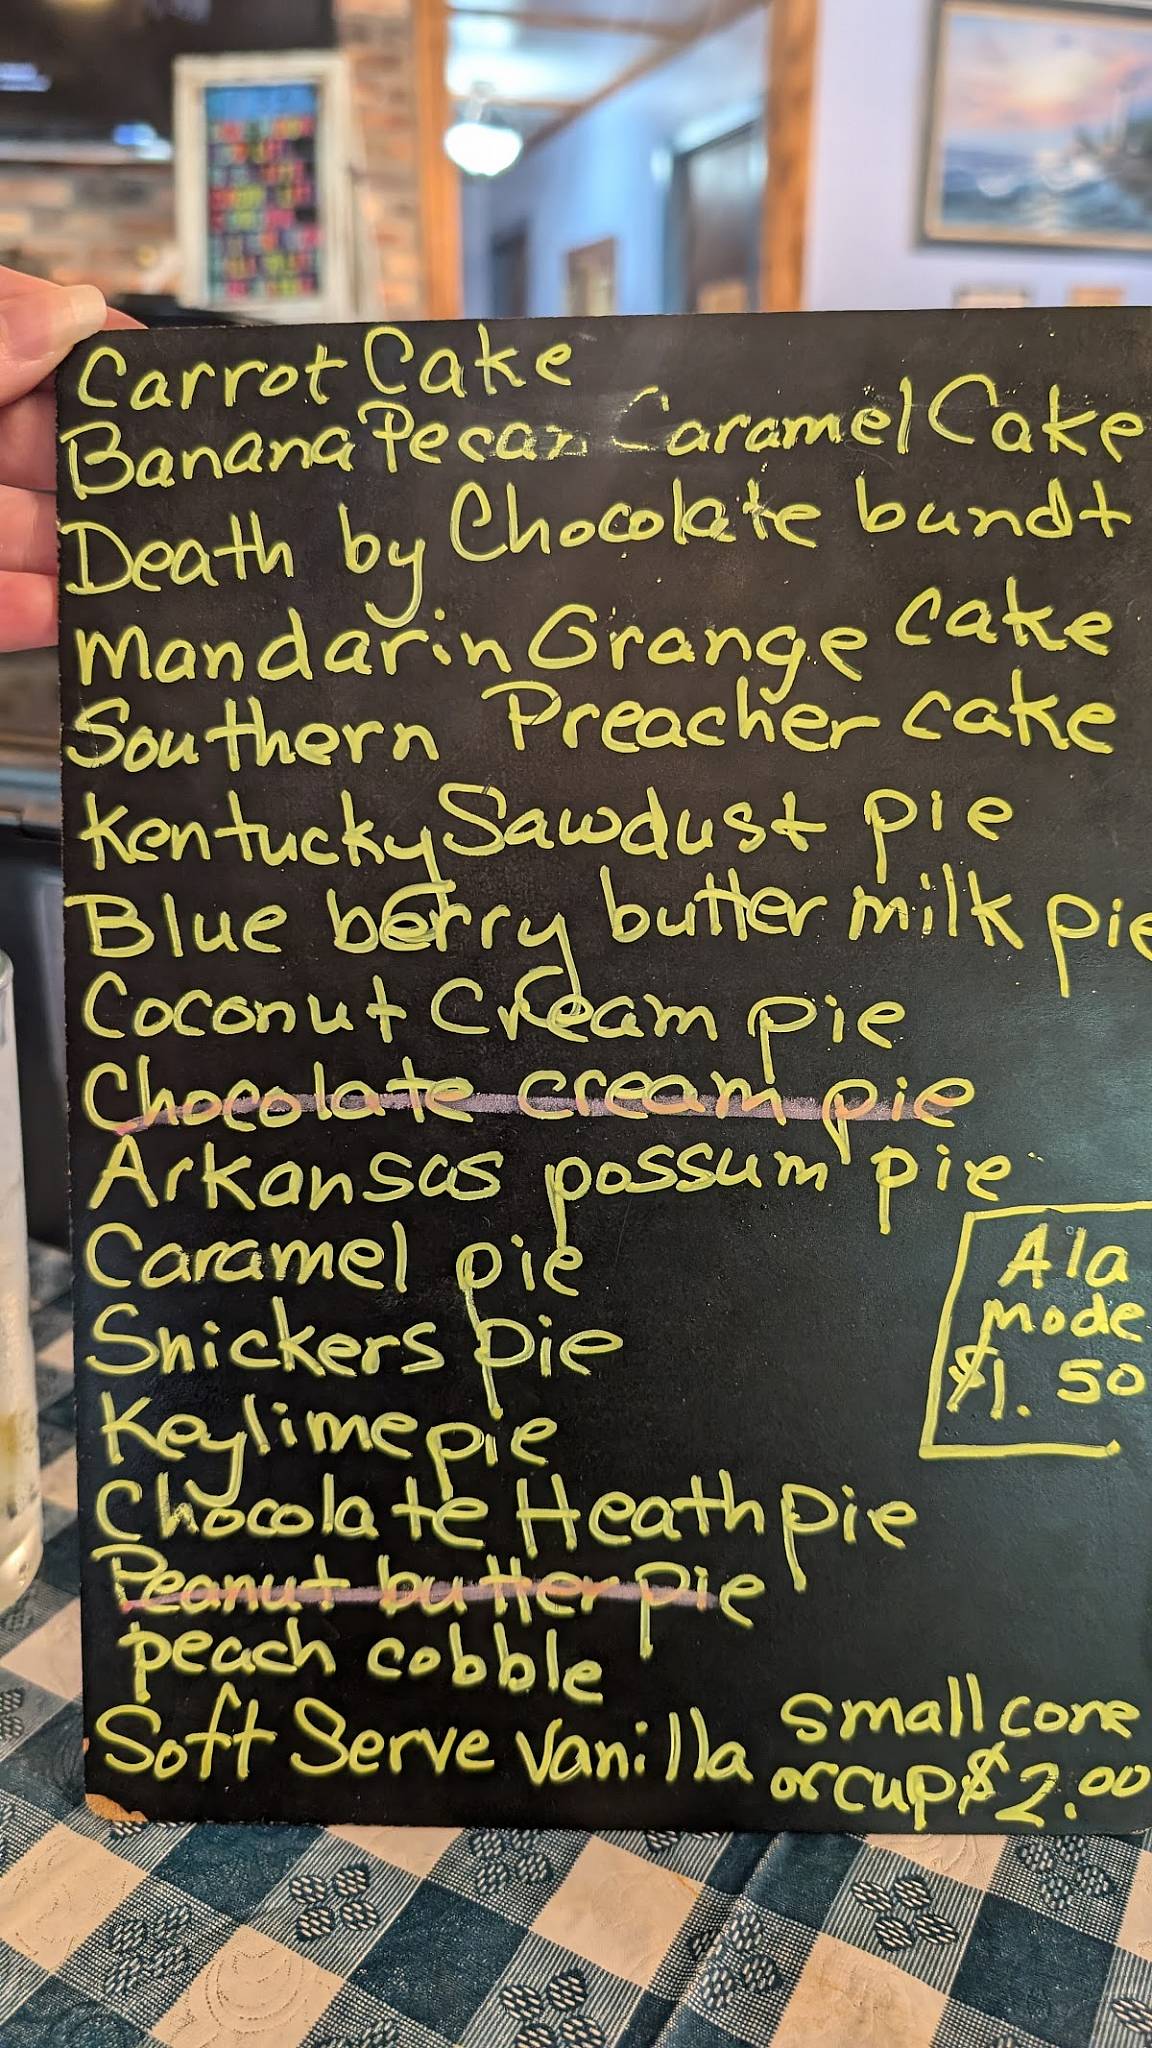 Carrot Cake
Banana Pecan Caramel Cake
Death by Chocolate bundt
Mandarin Orange cake
Southern Preacher cake
Kentucky Sawdust pie
Blue berry butter milk pie
Coconut Cream pie
Chocolate cream pie
Arkansas possum pie
Caramel pie
Snickers pie
Keylime pie
Chocolate Heath pie
Peanut butter pie
peach cobble
Soft Serve Vanilla small cone
or cup $2.00
A la
mode
$1.50